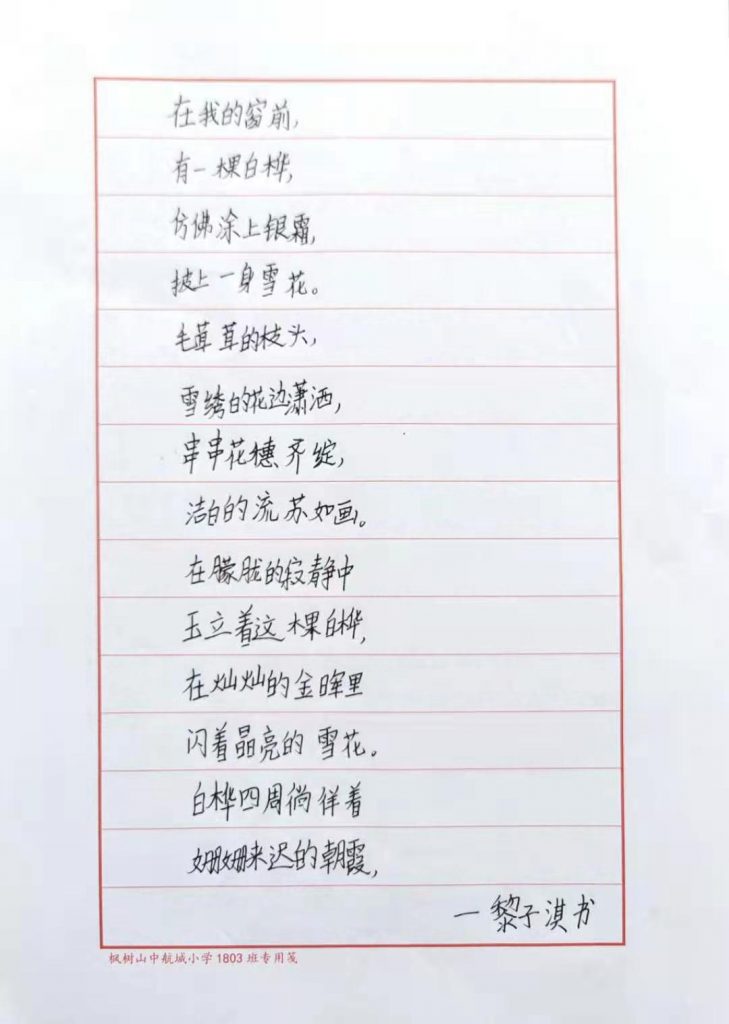 在我的窗前,
有一棵白桦,
仿佛涂上银霜,
披上一身雪花。
毛茸茸的枝头,
雪绣的花边潇洒,
串串花穗齐绽,
洁白的流苏如画。
在朦胧的寂静中
玉立着这棵白桦,
在灿灿的金晖里
闪着晶亮的雪花。
白桦四周徜徉着
姗姗来迟的朝霞,
一黎子淇书
枫树山中航城小学1803班专用笺